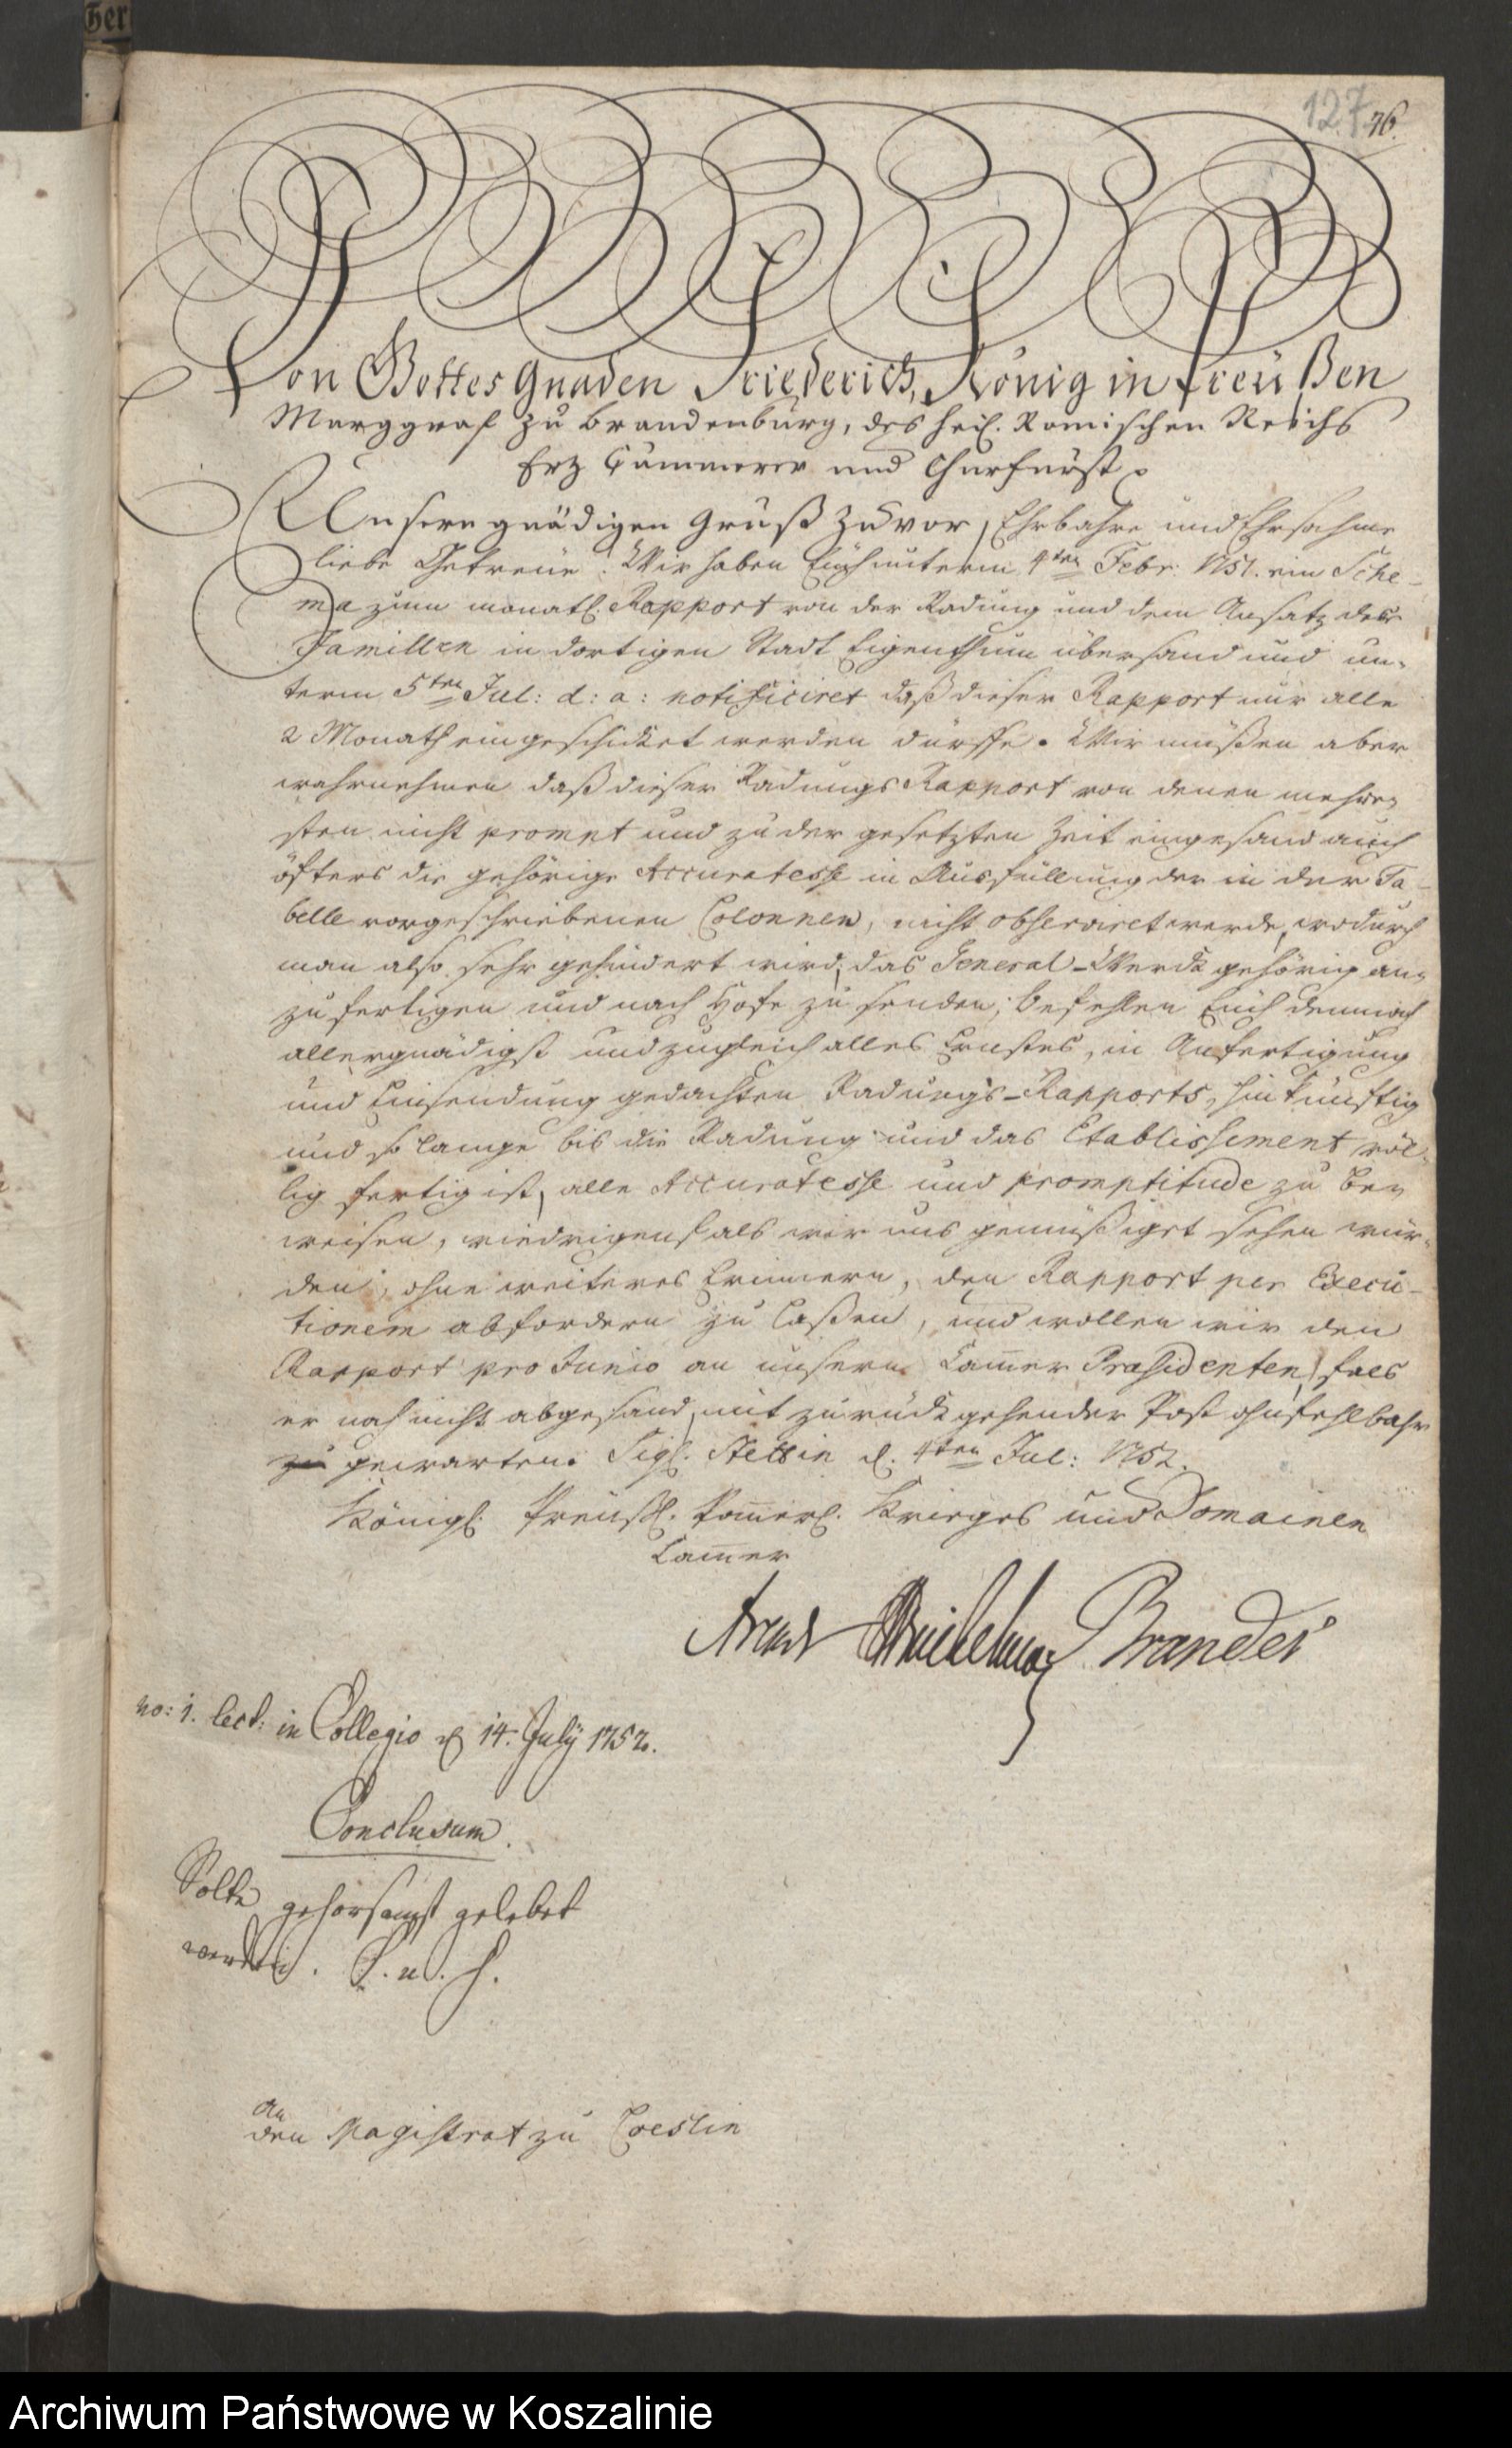 127 76.
Von Gottes Gnaden Friederich, König in Preußen
Marggraf zu Brandenburg, des heil. Römischen Reichs
Ertz Cämmerer und Churfürst.
Unsern gnädigen Gruß zuvor, Ehrbahre und Ehrsahme
liebe Getreue. Wir haben Euch unterm 4ten Febr. 1751. ein Sche-
ma zum monatl. Rapport von der Radung und dem Ansatz der
Famillen in dortigen Stadt Eigenthum übersand und un-
term 5ten Jul: d: a: notificiret daß dieser Rapport nur alle
2 Monath eingeschicket werden dürffe. Wir müßen aber
wahrnehmen daß dieser Radungs Rapport von denen mehre-
sten nicht prompt und zu der gesetzten Zeit eingesand auch
öfters die gehörige Accuratesse in Ausfüllung der in der Ta-
belle vorgeschriebenen Colonnen, nicht observiret werde, wodurch
man also sehr gehindert wird, das General-Werck gehörig an-
zufertigen und nach Hofe zu senden; befehlen Euch demnach
allergnädigst und zugleich alles Ernstes, in Anfertigung
und Einsendung gedachten Radungs-Rapports, hinkünftig
und so lange bis die Radung und das Etablissement völ-
lig fertig ist, alle Accuratesse und promptitude zu be-
weisen, wiedrigenfals wir uns gemüßiget sehen wür-
den, ohne weiteres Erinnern, den Rapport per Execu-
tionem abfordern zu laßen, und wollen wir den
Rapport pro Junio an unsern Camer Præsidenten, fals
er noch nicht abgesand, mit zurück gehender Post ohnfehlbahr
zu gewarten. Sigl. Stettin d. 4ten Jul: 1752.
Königl. Preußl. Pomerl. Krieges und Domainen
Camer
Brandes
no: 1. lect: in Collegio d 14. July 1752.
Conclusum.
Solte gehorsamst gelebet
werden.
An
den Magistrat zu Coeslin
Archiwum Państwowe w Koszalinie